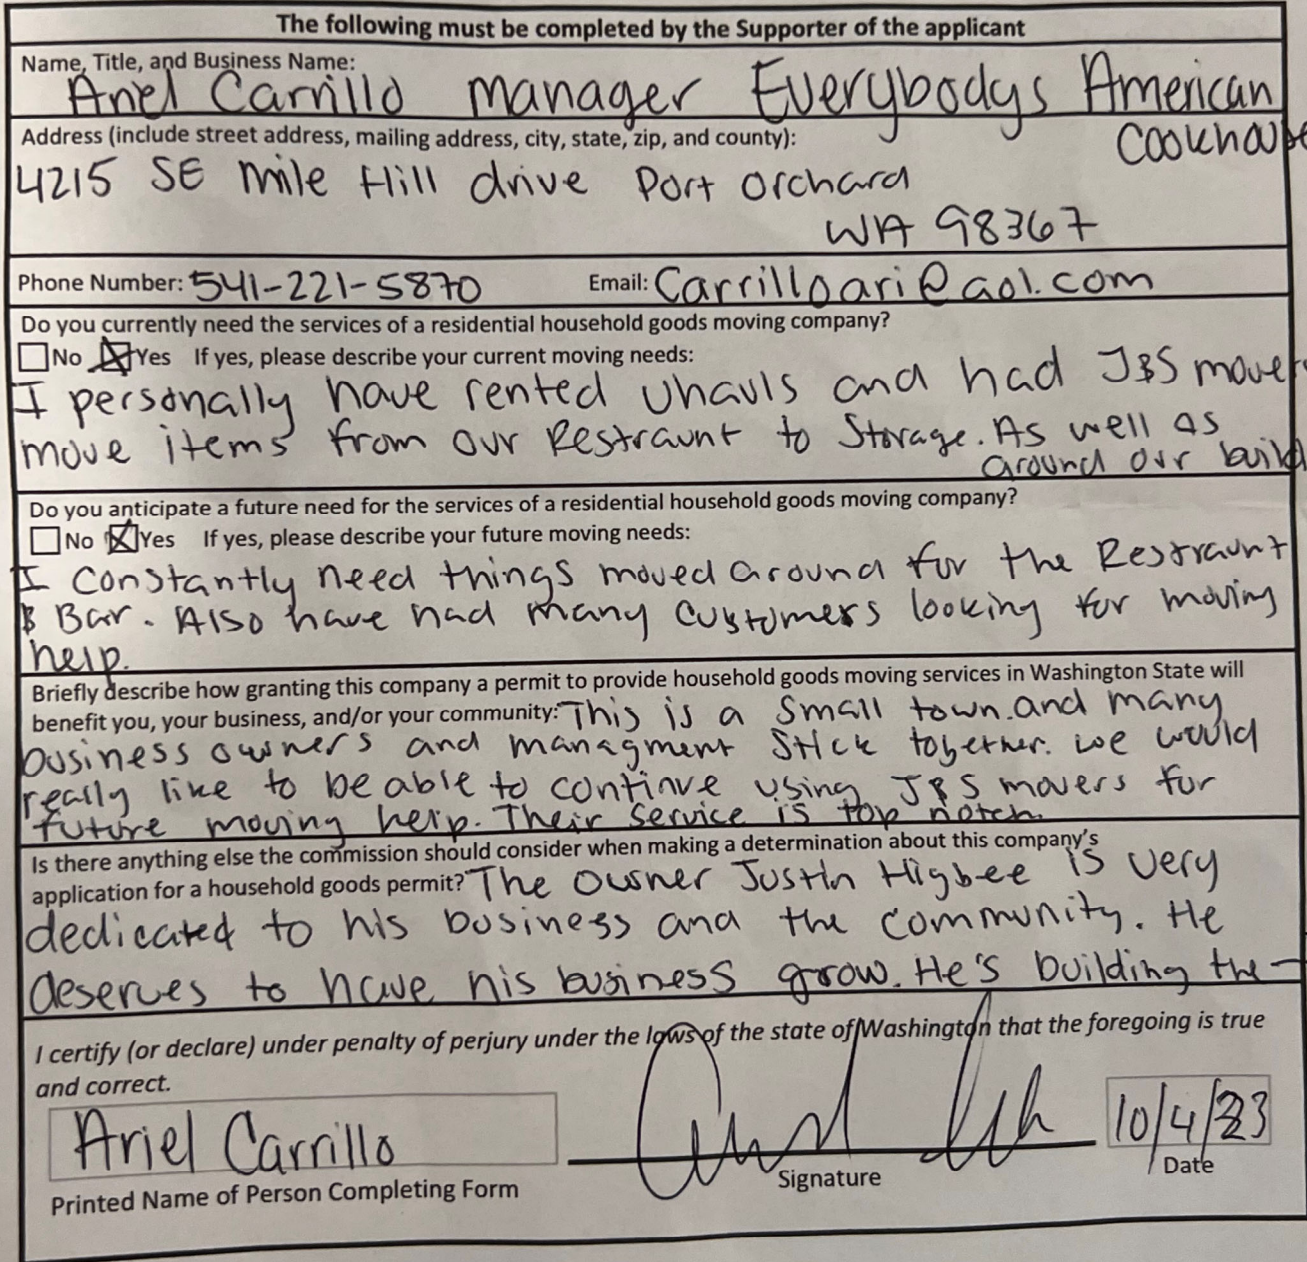 The following must be completed by the Supporter of the applicant
Name, Title, and Business Name:
Ariel Carrillo manager Everybodys American
Cookhouse
Address (include street address, mailing address, city, state, zip, and county):
4215 SE mile Hill drive Port Orchard
WA 98367
Phone Number: 541-221-5870 Email: Carrilloari@aol.com
Do you currently need the services of a residential household goods moving company?
No Yes If yes, please describe your current moving needs:
I personally have rented Uhauls and had J&S movers
move items from our Restraunt to Storage. As well as
around our build
Do you anticipate a future need for the services of a residential household goods moving company?
No Yes If yes, please describe your future moving needs:
I constantly need things moved around for the Restraunt
& Bar. Also have had many customers looking for moving
help.
Briefly describe how granting this company a permit to provide household goods moving services in Washington State will
benefit you, your business, and/or your community: This is a small town. and many
business owners and managment stick together. we would
really like to be able to continue using J&S movers for
future moving help. Their service is top notch.
Is there anything else the commission should consider when making a determination about this company's
application for a household goods permit? The owner Justin Higbee is very
dedicated to his business and the community. He
deserves to have his business grow. He's building the
I certify (or declare) under penalty of perjury under the laws of the state of Washington that the foregoing is true
and correct.
Ariel Carrillo 10/4/23
Printed Name of Person Completing Form Signature Date